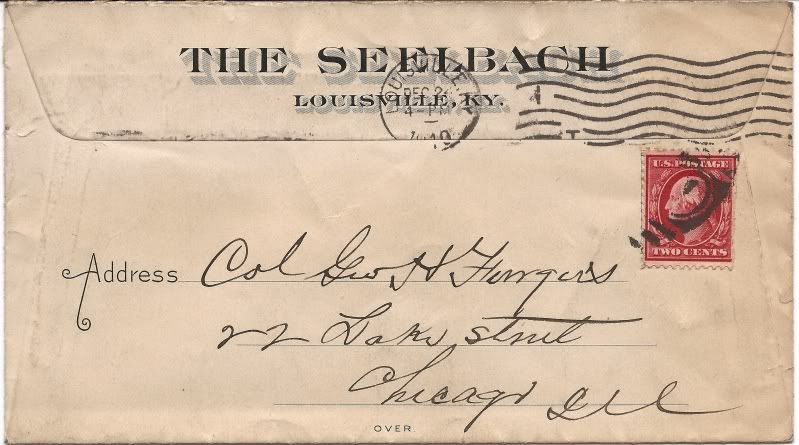 THE SEELBACH
LOUISVILLE, KY.
LOUISVILLE, KY
DEC 2
4 - PM
U.S. POSTAGE
TWO CENTS
Address Col Geo H
22 Lake street
Chicago Ill
OVER